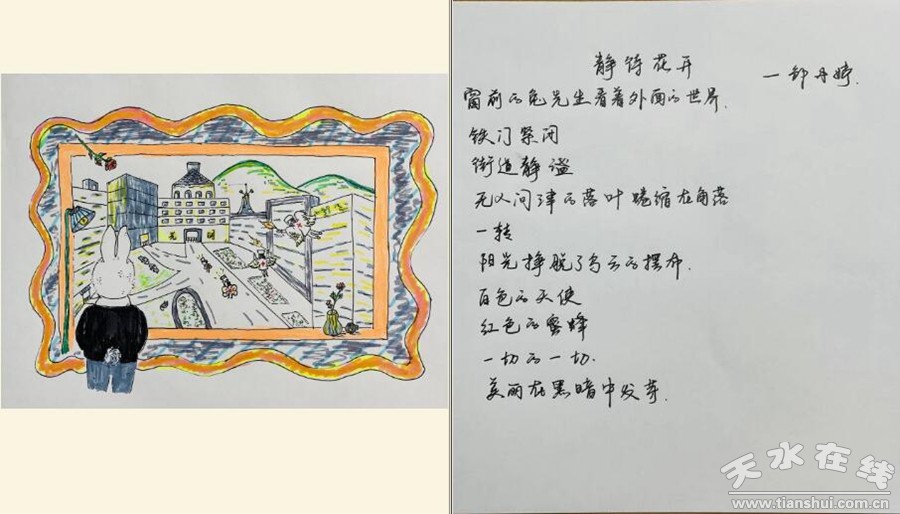 静待花开
— 郭丹婷.
窗前的兔先生看着外面的世界.
铁门紧闭
街道静谧
无人问津的落叶蜷缩在角落
一转
阳光挣脱了乌云的摆布.
白色的天使
红色的蜜蜂
一切的一切.
美丽在黑暗中发芽.
天水在线
www.tianshui.com.cn